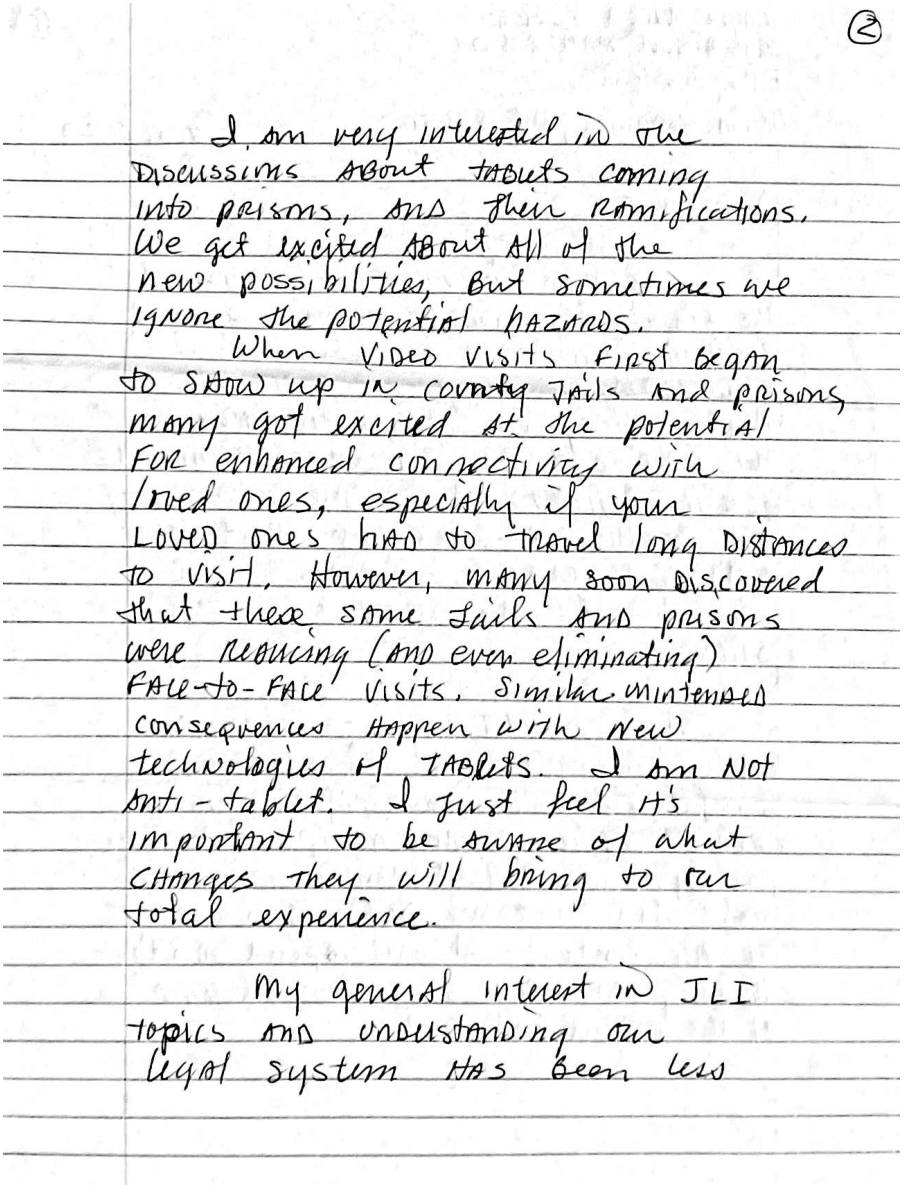 2
I am very interested in the
Discussions About tablets coming
into prisons, and their Ramifications.
We get excited About All of the
new possibilities, But sometimes we
ignore the potential hazards.
When Video visits first began
to show up in county Jails and prisons,
many got excited at the potential
For enhanced connectivity with
loved ones, especially if your
Loved ones had to travel long Distances
to visit. However, many soon Discovered
that these same Jails and prisons
were reducing (and even eliminating)
Face-to-Face visits. Similar unintended
consequences happen with New
technologies of Tablets. I am Not
Anti-tablet. I Just feel it's
important to be aware of what
changes they will bring to our
total experience.
My general interest in JLI
topics and understanding our
legal system has been less